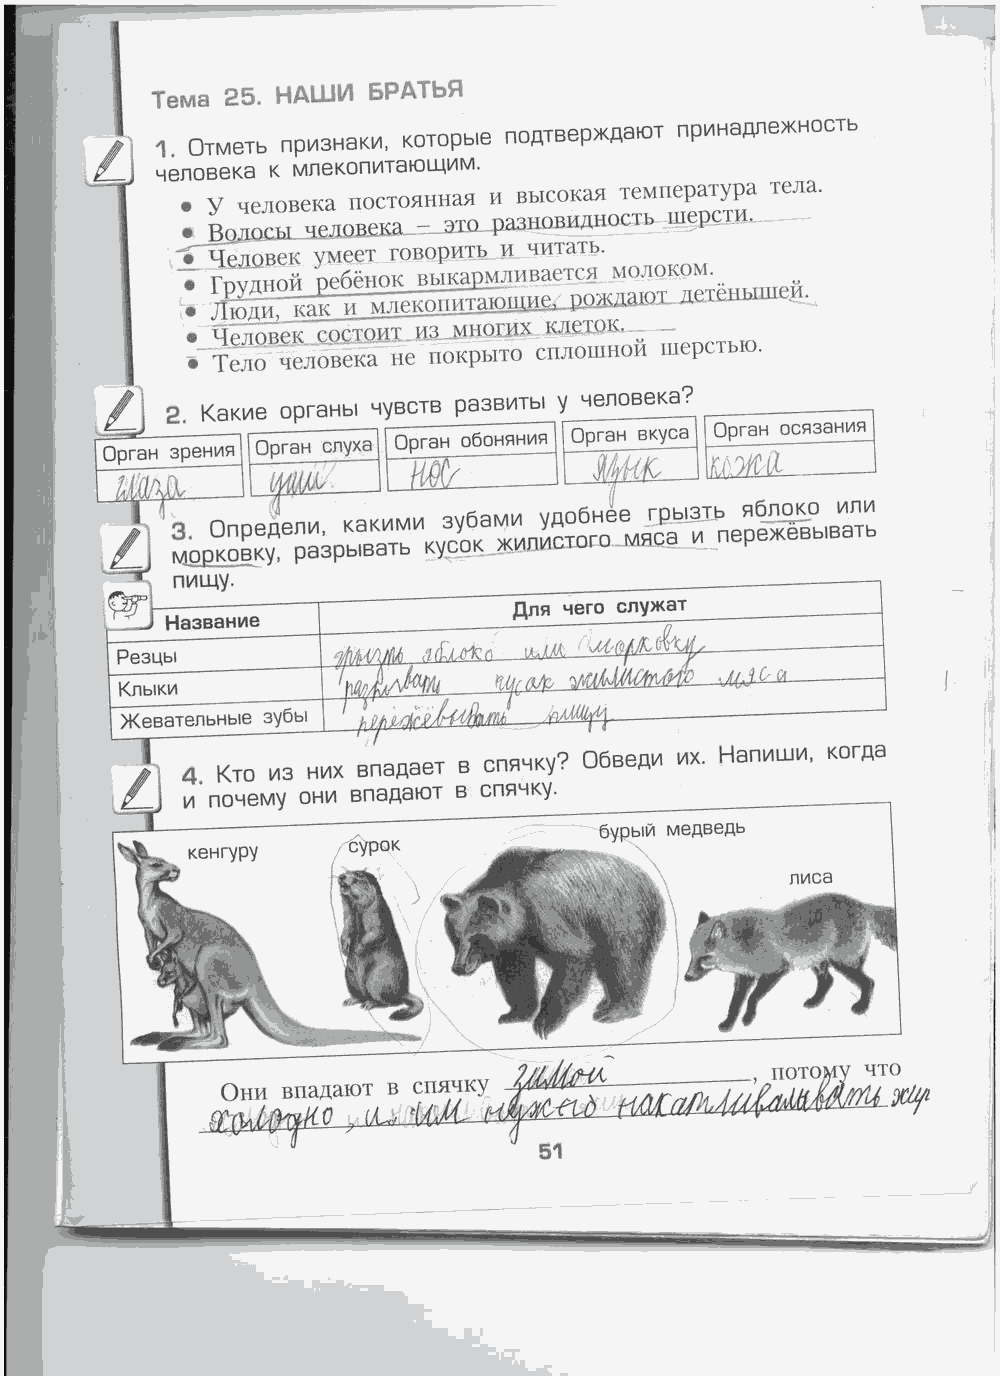 Тема 25. НАШИ БРАТЬЯ
1. Отметь признаки, которые подтверждают принадлежность
человека к млекопитающим.
• У человека постоянная и высокая температура тела.
• Волосы человека – это разновидность шерсти.
• Человек умеет говорить и читать.
• Грудной ребёнок выкармливается молоком.
• Люди, как и млекопитающие, рождают детёнышей.
• Человек состоит из многих клеток.
• Тело человека не покрыто сплошной шерстью.
2. Какие органы чувств развиты у человека?
Орган зрения Орган слуха Орган обоняния Орган вкуса Орган осязания
глаза уши нос язык кожа
3. Определи, какими зубами удобнее грызть яблоко или
морковку, разрывать кусок жилистого мяса и пережёвывать
пищу.
Название Для чего служат
Резцы грызть яблоко или морковку
Клыки разрывать кусок жилистого мяса
Жевательные зубы пережёвывать пищу
4. Кто из них впадает в спячку? Обведи их. Напиши, когда
и почему они впадают в спячку.
кенгуру сурок бурый медведь
лиса
Они впадают в спячку зимой, потому что
холодно, и им нужно жир
51